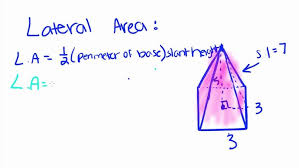 Lateral Area:
L.A = 1/2 (perimeter of base) slant height
L.A =
sl=7
3
3